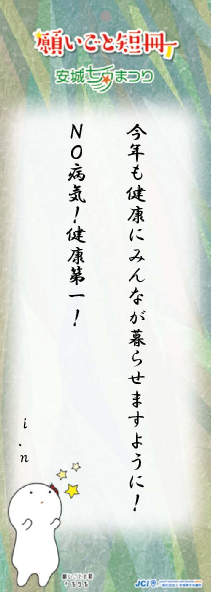 願いごと短冊
安城七夕まつり
今年も健康にみんなが暮らせますように！
NO病気！健康第一！
i.n
JCI